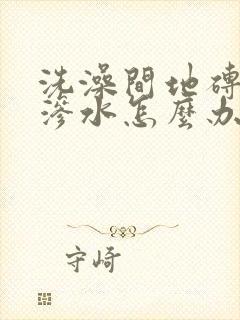 洗澡間地磚
滲水怎麼办
守崎